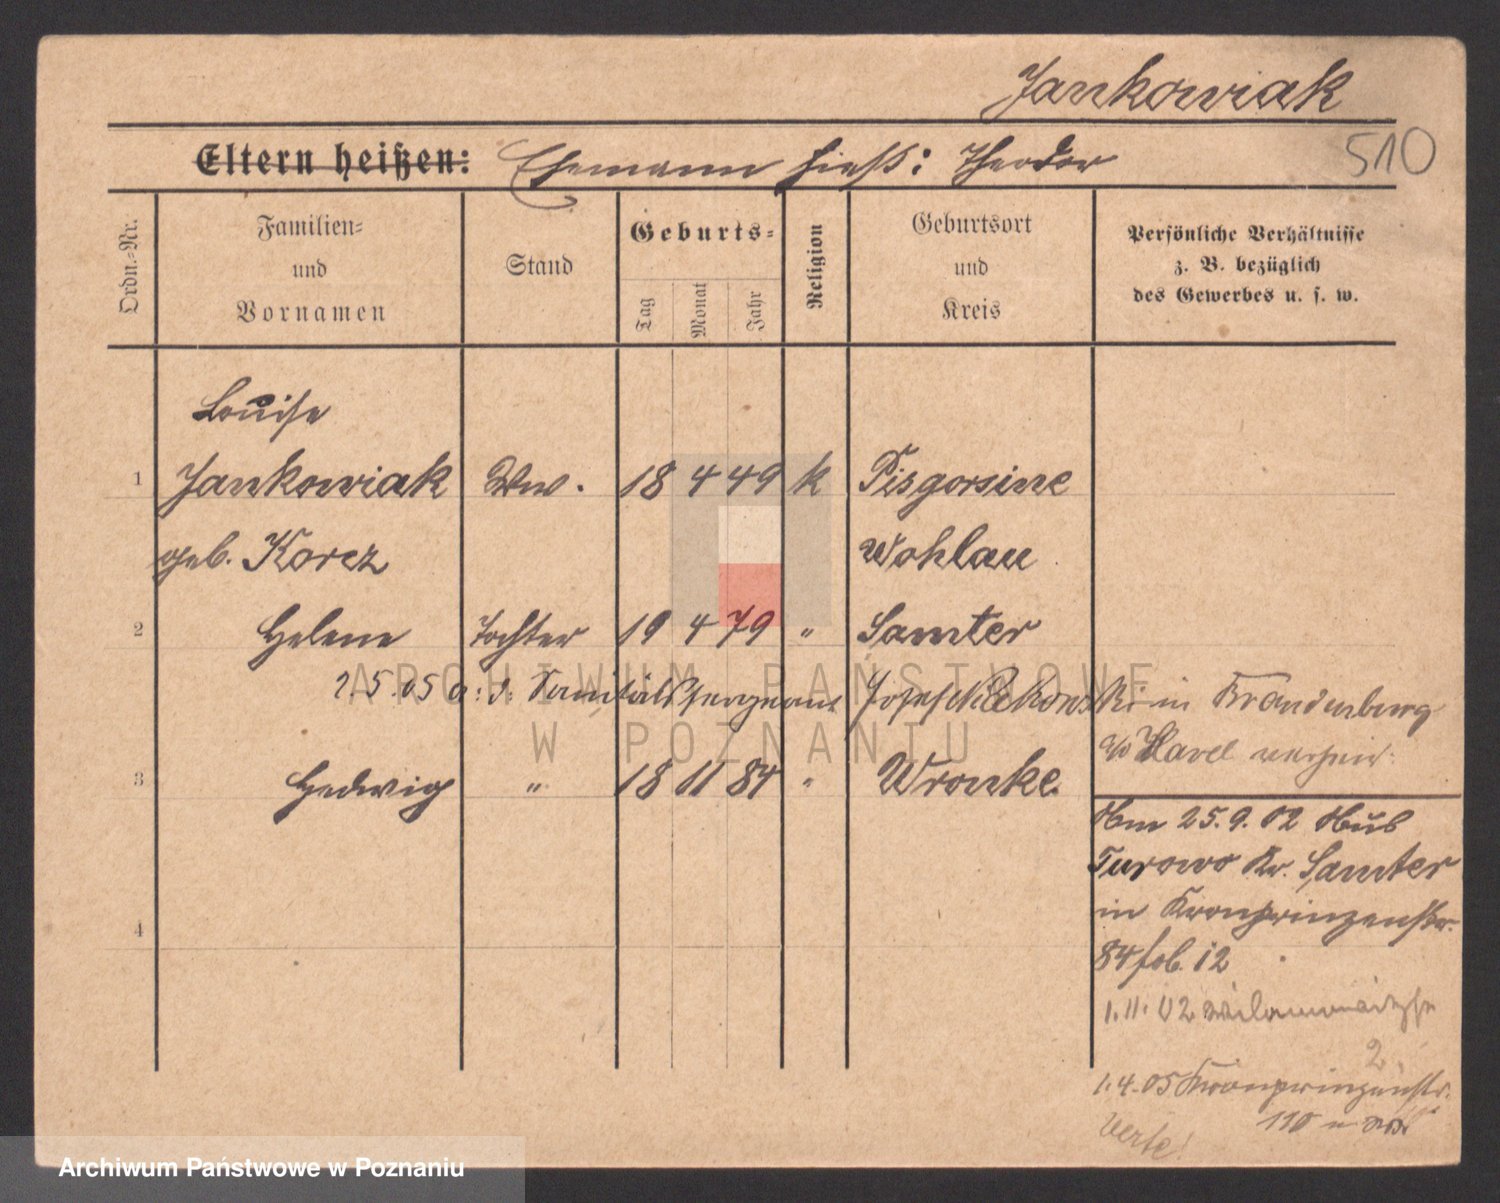 Jankowiak
510
Eltern heißen: Ehemann hieß: Theodor
Ordn.-Nr.
Familien-
und
Vornamen
Stand
Geburts-
Tag
Monat
Jahr
Religion
Geburtsort
und
Kreis
Persönliche Verhältnisse
z. B. bezüglich
des Gewerbes u. s. w.
Louise
1 Jankowiak Ww. 18 4 49 k Pisgorsine
geb. Korcz Wohlau
2 Helene Tochter 19 4 79 " Samter
2.5.05 a. d. Sanitätssergeant Josef in Brandenburg
a/ Havel verheir.
3 Hedwig " 18 11 84 " Wronke
25.9.02
Turowo Kr. Samter
in Kronprinzenstr.
84 12
4
1.11.02
2
1.4.05 Kronprinzenstr.
110
Verte!
ARCHIWUM PAŃSTWOWE
W POZNANIU
Archiwum Państwowe w Poznaniu